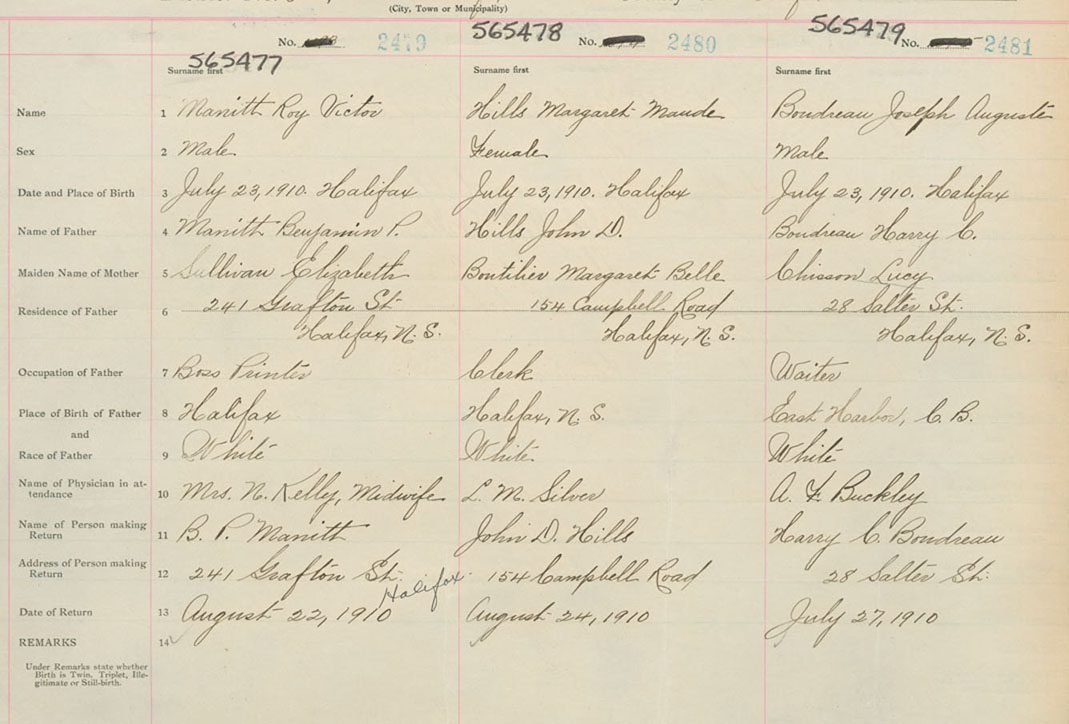 (City, Town or Municipality)
No. 2479 565478 No. 2480 565479 No. 2481
565477
Surname first Surname first Surname first
Name 1 Manitt Roy Victor Hills Margaret Maude Boudreau Joseph Auguste
Sex 2 Male Female Male
Date and Place of Birth 3 July 23, 1910. Halifax July 23, 1910. Halifax July 23, 1910. Halifax
Name of Father 4 Manitt Benjamin P. Hills John D. Boudreau Harry C.
Maiden Name of Mother 5 Sullivan Elizabeth Boutilier Margaret Belle Chisson Lucy
Residence of Father 6 241 Grafton St. 154 Campbell Road 28 Salter St.
Halifax, N. S. Halifax, N. S. Halifax, N. S.
Occupation of Father 7 Boss Printer Clerk Waiter
Place of Birth of Father 8 Halifax Halifax, N. S. East Harbor, C. B.
and
Race of Father 9 White White. White
Name of Physician in at-
tendance 10 Mrs. N. Kelly, Midwife L. M. Silver A. F. Buckley
Name of Person making
Return 11 B. P. Manitt John D. Hills Harry C. Boudreau
Address of Person making
Return 12 241 Grafton St. Halifax 154 Campbell Road 28 Salter St.
Date of Return 13 August 22, 1910 August 24, 1910 July 27, 1910
REMARKS 14
Under Remarks state whether
Birth is Twin, Triplet, Ille-
gitimate or Still-birth.